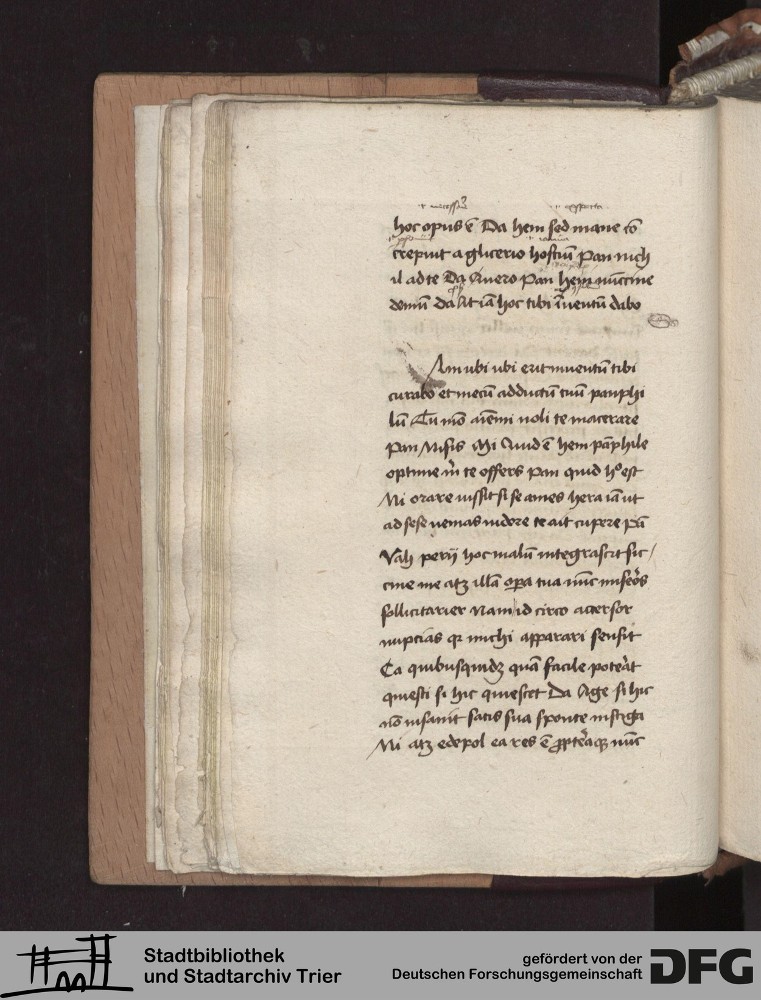 hoc opus ē Da hem sed mane cō
crepuit a glicerio hostiū Pan nich
il ad te Da Quero Pan hem nūccine
demū Da At iā hoc tibi īuentū dabo
Am ubi ubi erit inuentū tibi
curabo et mecū adductū tuū panphi
lū Tu mō aīe mi noli te macerare
Pan Misis Mi Quid ē hem pāphile
optime m̄ te offers Pan quid hᵒ est
Mi orare iussit si se ames hera iā ut
ad sese uenias uidere te ait cupere Pā
Vah perij hoc malū integrascit sic
cine me atqꝫ illā opera tua nūc miseros
sollicitarier Nam id circo accersor
nupcias qꝫ michi apparari sensit
Ca quibus quidꝫ quā facile poterat
quiesci si hic quiescet Da Age si hic
nō insanit satis sua sponte instiga
Mi atqꝫ edepol ea res ē ꝓpterea qꝫ nūc
Stadtbibliothek
und Stadtarchiv Trier
gefördert von der
Deutschen Forschungsgemeinschaft
DFG